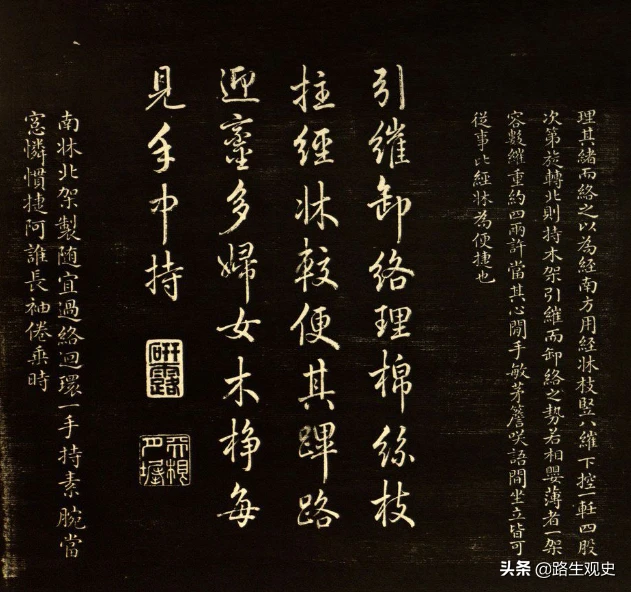 理其緒而絡之以為經南方用經牀枝竪八維下控一軖四股
次第旋轉北則持木架引維而卸絡之勢若相嬰薄者一架
容數維重約四兩許當其心閒手敏茅簷咲語間坐立皆可
從事比經牀為便捷也
引維卸絡理棉絲枝
拄經牀較便其蹕路
迎鑾多婦女木棦每
見手中持
研露
南牀北架製隨宜過絡迴環一手持素腕當
窓憐慣捷阿誰長袖倦乗時
头条 @路生观史